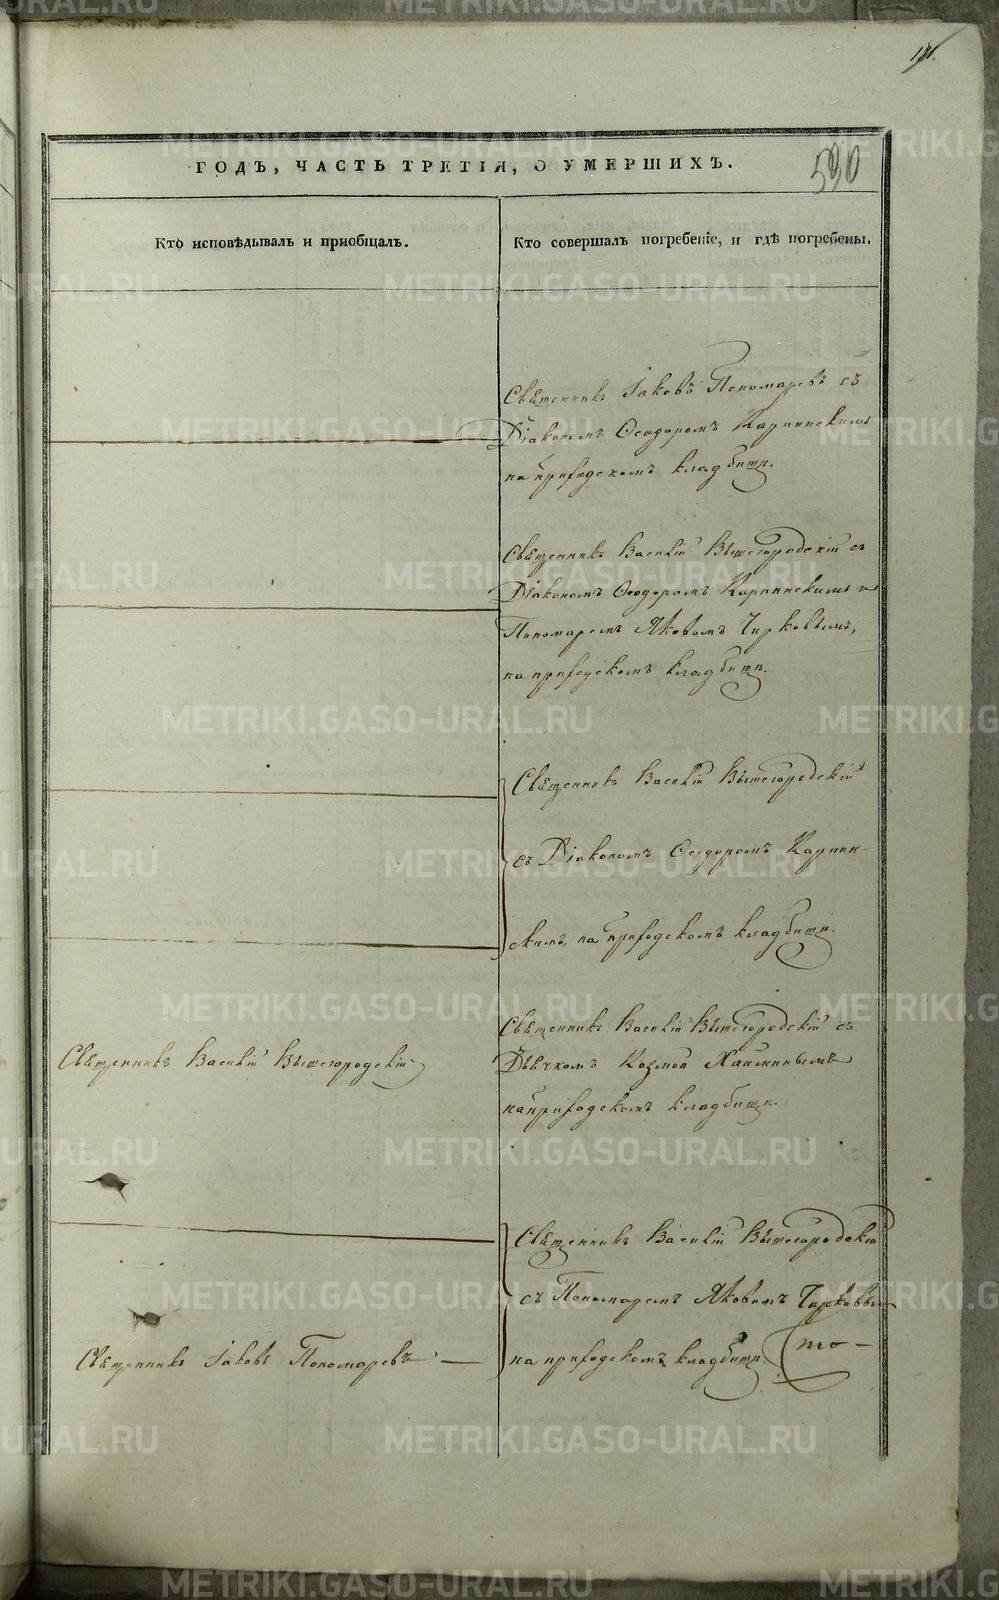 131.
ГОДЪ, ЧАСТЬ ТРЕТІЯ, О УМЕРШИХЪ.
590
Кто исповѣдывалъ и пріобщалъ.
Кто совершалъ погребеніе, и гдѣ погребены.
Священникъ Іаковъ Пономаревъ съ
Діакономъ Ѳеодоромъ Карпинскимъ
на приходскомъ кладбищѣ.
Священникъ Василій Вышегородскій съ
Діакономъ Ѳеодоромъ Карпинскимъ и
Пономаремъ Яковомъ Чирковымъ,
на приходскомъ кладбищѣ.
Священникъ Василій Вышегородскій
съ Діакономъ Ѳеодоромъ Карпин-
скимъ, на приходскомъ кладбищѣ.
Священникъ Василій Вышегородскій
Священникъ Василій Вышегородскій съ
Дьячкомъ Козмой
на приходскомъ кладбищѣ.
Священникъ Василій Вышегородскій
съ Пономаремъ Яковомъ Чирковым
Священникъ Іаковъ Пономаревъ —
на приходскомъ кладбищѣ.
METRIKI.GASO-URAL.RU